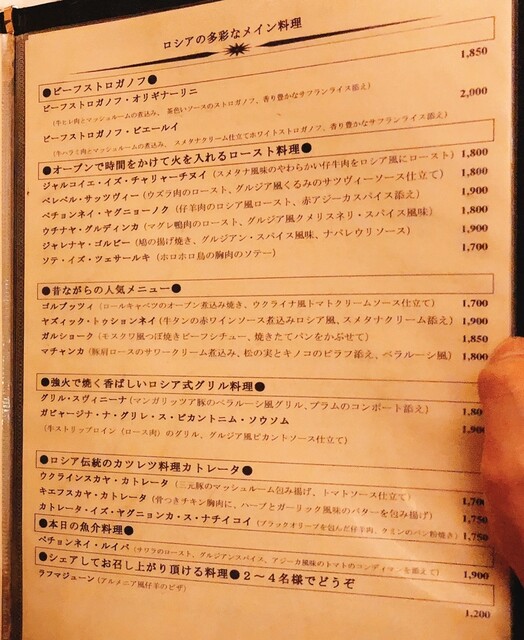 ロシアの多彩なメイン料理
●ビーフストロガノフ●
ビーフストロガノフ・オリギナーリニ 1,850
(牛ヒレ肉とマッシュルームの煮込み、茶色いソースのストロガノフ、香り豊かなサフランライス添え)
ビーフストロガノフ・ビエールイ 2,000
(牛ハラミ肉とマッシュルームの煮込み、スメタナクリーム仕立てホワイトストロガノフ、香り豊かなサフランライス添え)
●オーブンで時間をかけて火を入れるロースト料理●
ジャルコイェ・イズ・チャリャーチヌイ(スメタナ風味のやわらかい仔牛肉をロシア風にロースト) 1,800
ペレペル・サッツヴィー(ウズラ肉のロースト、グルジア風くるみのサツヴィーソース仕立て) 1,800
ペチョンネイ・ヤグニョーノク(仔羊肉のロシア風ロースト、赤アジーカスパイス添え) 1,900
ウチナヤ・グルディンカ(マグレ鴨肉のロースト、グルジア風クメリスネリ・スパイス風味) 1,800
ジャレナヤ・ゴルビー(鳩の揚げ焼き、グルジアン・スパイス風味、ナパレウリソース) 1,900
ソテ・イズ・ツェサールキ(ホロホロ鳥の胸肉のソテー) 1,700
●昔ながらの人気メニュー●
ゴルブッツィ(ロールキャベツのオーブン煮込み焼き、ウクライナ風トマトクリームソース仕立て) 1,700
ヤズィック・トゥションネイ(牛タンの赤ワインソース煮込みロシア風、スメタナクリーム添え) 1,900
ガルショーク(モスクワ風つぼ焼きビーフシチュー、焼きたてパンをかぶせて) 1,850
マチャンカ(豚肩ロースのサワークリーム煮込み、松の実とキノコのピラフ添え、ベラルーシ風) 1,800
●強火で焼く香ばしいロシア式グリル料理●
グリル・スヴィニーナ(マンガリッツア豚のベラルーシ風グリル、プラムのコンポート添え) 1,80
ガビャージナ・ナ・グリレ・ス・ピカントニム・ソウソム 1,90
(牛ストリップロイン(ロース肉)のグリル、グルジア風ピカントソース仕立て)
●ロシア伝統のカツレツ料理カトレータ●
ウクラインスカヤ・カトレータ(三元豚のマッシュルーム包み揚げ、トマトソース仕立て) 1,70
キエフスカヤ・カトレータ(骨つきチキン胸肉に、ハーブとガーリック風味のバターを包み揚げ) 1,750
カトレータ・イズ・ヤグニョンカ・ス・ナチイコイ(ブラックオリーブを包んだ仔羊肉、クミンのパン粉焼き) 1,750
●本日の魚介料理●
ペチョンネイ・ルイバ(サワラのロースト、グルジアンスパイス、アジーカ風味のトマトのコンディマンを添えて) 1,900
●シェアしてお召し上がり頂ける料理●2~4名様でどうぞ
ラフマジューン(アルメニア風仔羊のピザ) 1,200